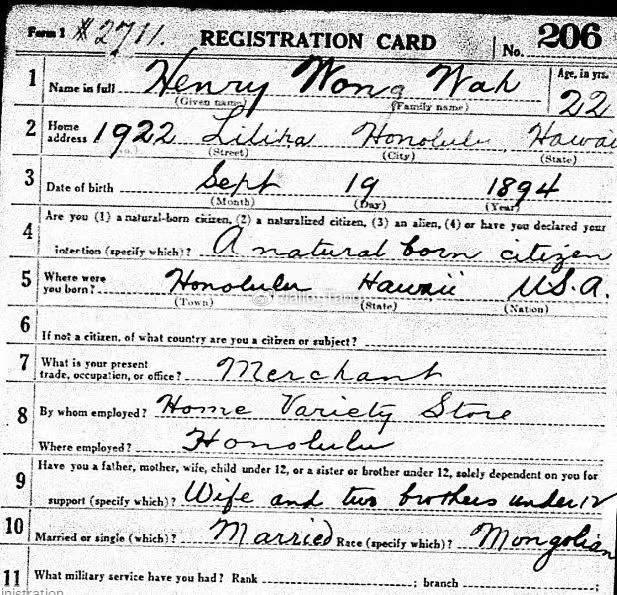 Form 1 #2711. REGISTRATION CARD No. 206
1 Name in full Henry Wong Wah Age, in yrs.
(Given name) (Family name) 22
2 Home address 1922 Liliha Honolulu Hawaii
(No.) (Street) (City) (State)
3 Date of birth Sept 19 1894
(Month) (Day) (Year)
4 Are you (1) a natural-born citizen, (2) a naturalized citizen, (3) an alien, (4) or have you declared your
intention (specify which)? A natural born citizen
5 Where were you born? Honolulu Hawaii U.S.A.
(Town) (State) (Nation)
6 If not a citizen, of what country are you a citizen or subject?
7 What is your present trade, occupation, or office? Merchant
8 By whom employed? Home Variety Store
Where employed? Honolulu
9 Have you a father, mother, wife, child under 12, or a sister or brother under 12, solely dependent on you for
support (specify which)? Wife and two brothers under 12
10 Married or single (which)? Married Race (specify which)? Mongolian
11 What military service have you had? Rank ; branch